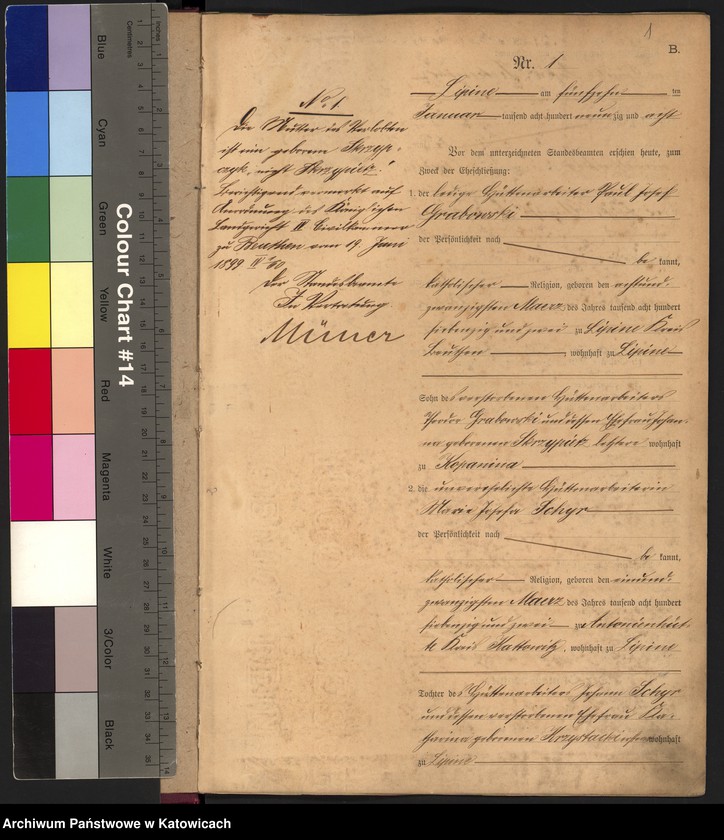 Colour Chart #14
Blue
Cyan
Green
Yellow
Red
Magenta
White
3/Color
Black
Centimetres
Inches
B.
Nr. 1
Lipine am fünfzehn ten
Januar tausend acht hundert neunzig und acht
Vor dem unterzeichneten Standesbeamten erschien heute, zum
Zweck der Eheschließung:
1. der ledige Hüttenarbeiter Paul Josef
Grabowski
der Persönlichkeit nach
be kannt,
katholischer Religion, geboren den achtund-
zwanzigsten Maerz des Jahres tausend acht hundert
siebenzig und zwei zu Lipine Kreis
Beuthen, wohnhaft zu Lipine
Sohn des verstorbenen Hüttenarbeiters
Grabowski und dessen Ehefrau Johan-
na geborenen Skrzypietz letztere wohnhaft
zu Kopanina
2. die unverehelichte Hüttenarbeiterin
Marie Josefa Schyr
der Persönlichkeit nach
be kannt,
katholischer Religion, geboren den einund-
zwanzigsten Maerz des Jahres tausend acht hundert
siebenzig und zwei zu Antonienhüt-
te Kreis Kattowitz, wohnhaft zu Lipine
Tochter des Hüttenarbeiters Johann Schyr
und dessen verstorbenen Ehefrau Ka-
tharina geborenen wohnhaft
zu Lipine
No. 1
Die Mutter des Verlobten
ist eine geborene Skrzyp-
czyk, nicht Skrzypietz!
Berichtigend vermerkt auf
Anordnung des Königlichen
Landgericht II Civilkammer
zu Beuthen vom 19. Juni
1899
Der Standesbeamte
In Vertretung
Archiwum Państwowe w Katowicach